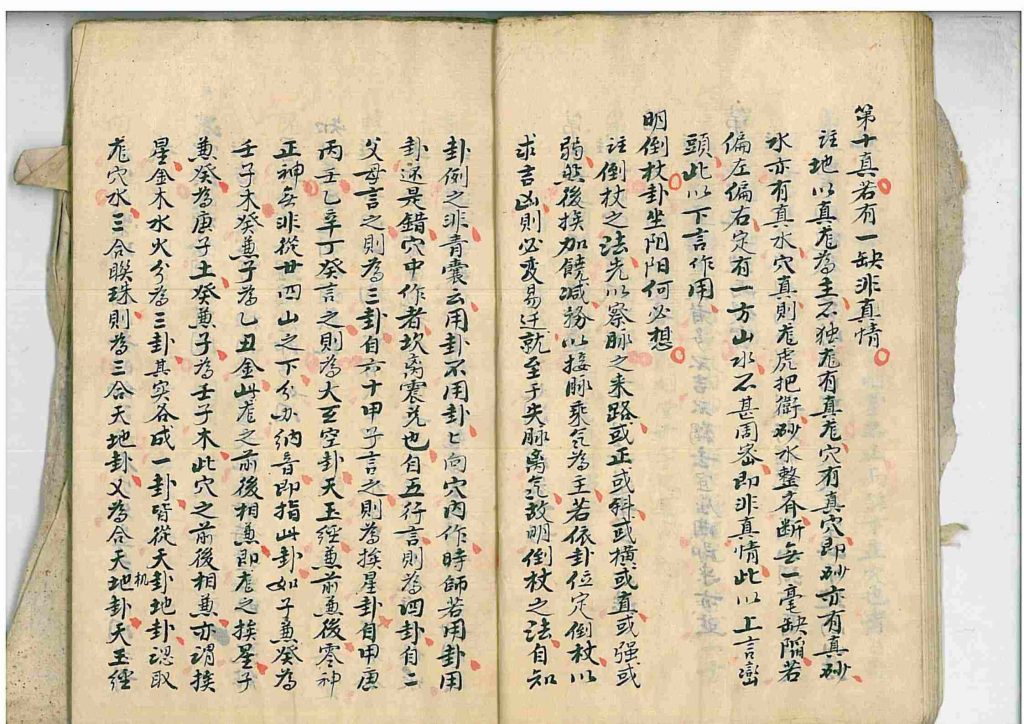 第十真若有一缺非真情
註地以真龙為主不独龙有真龙穴有真穴即砂亦有真砂
水亦有真水穴真則龙虎把衛砂水整斉断無一毫缺陷若
偏左偏右定有一方山水不甚周密即非真情此以上言巒
頭此以下言作用
明倒杖卦坐阴阳何必想
註倒杖之法先以察脉之来路或正或斜或横或直或强或
弱然後挨加饒减務以接脉乘气為主若依卦位定倒杖以
求吉凶則必变易迁就至于失脉離气故明倒杖之法自知
卦例之非青囊云用卦不用卦匕向穴内作時師若用卦用
卦还是錯穴中作者坎离震兑也自五行言則為四卦自二
父母言之則為三卦自六十甲子言之則為挨星卦自甲庚
丙壬乙辛丁癸言之則為大玄空卦天玉經兼前兼後零神
正神無非從廿四山之下分办納音即指此卦如子兼癸為
壬子木癸兼子為乙丑金此龙之前後相兼即龙之挨星子
兼癸為庚子土癸兼子為壬子木此穴之前後相兼亦謂挨
星金木水火分為三卦其实各成一卦皆從天卦地卦认取
机
龙穴水三合聫珠則為三合天地卦又為合天地卦天玉經